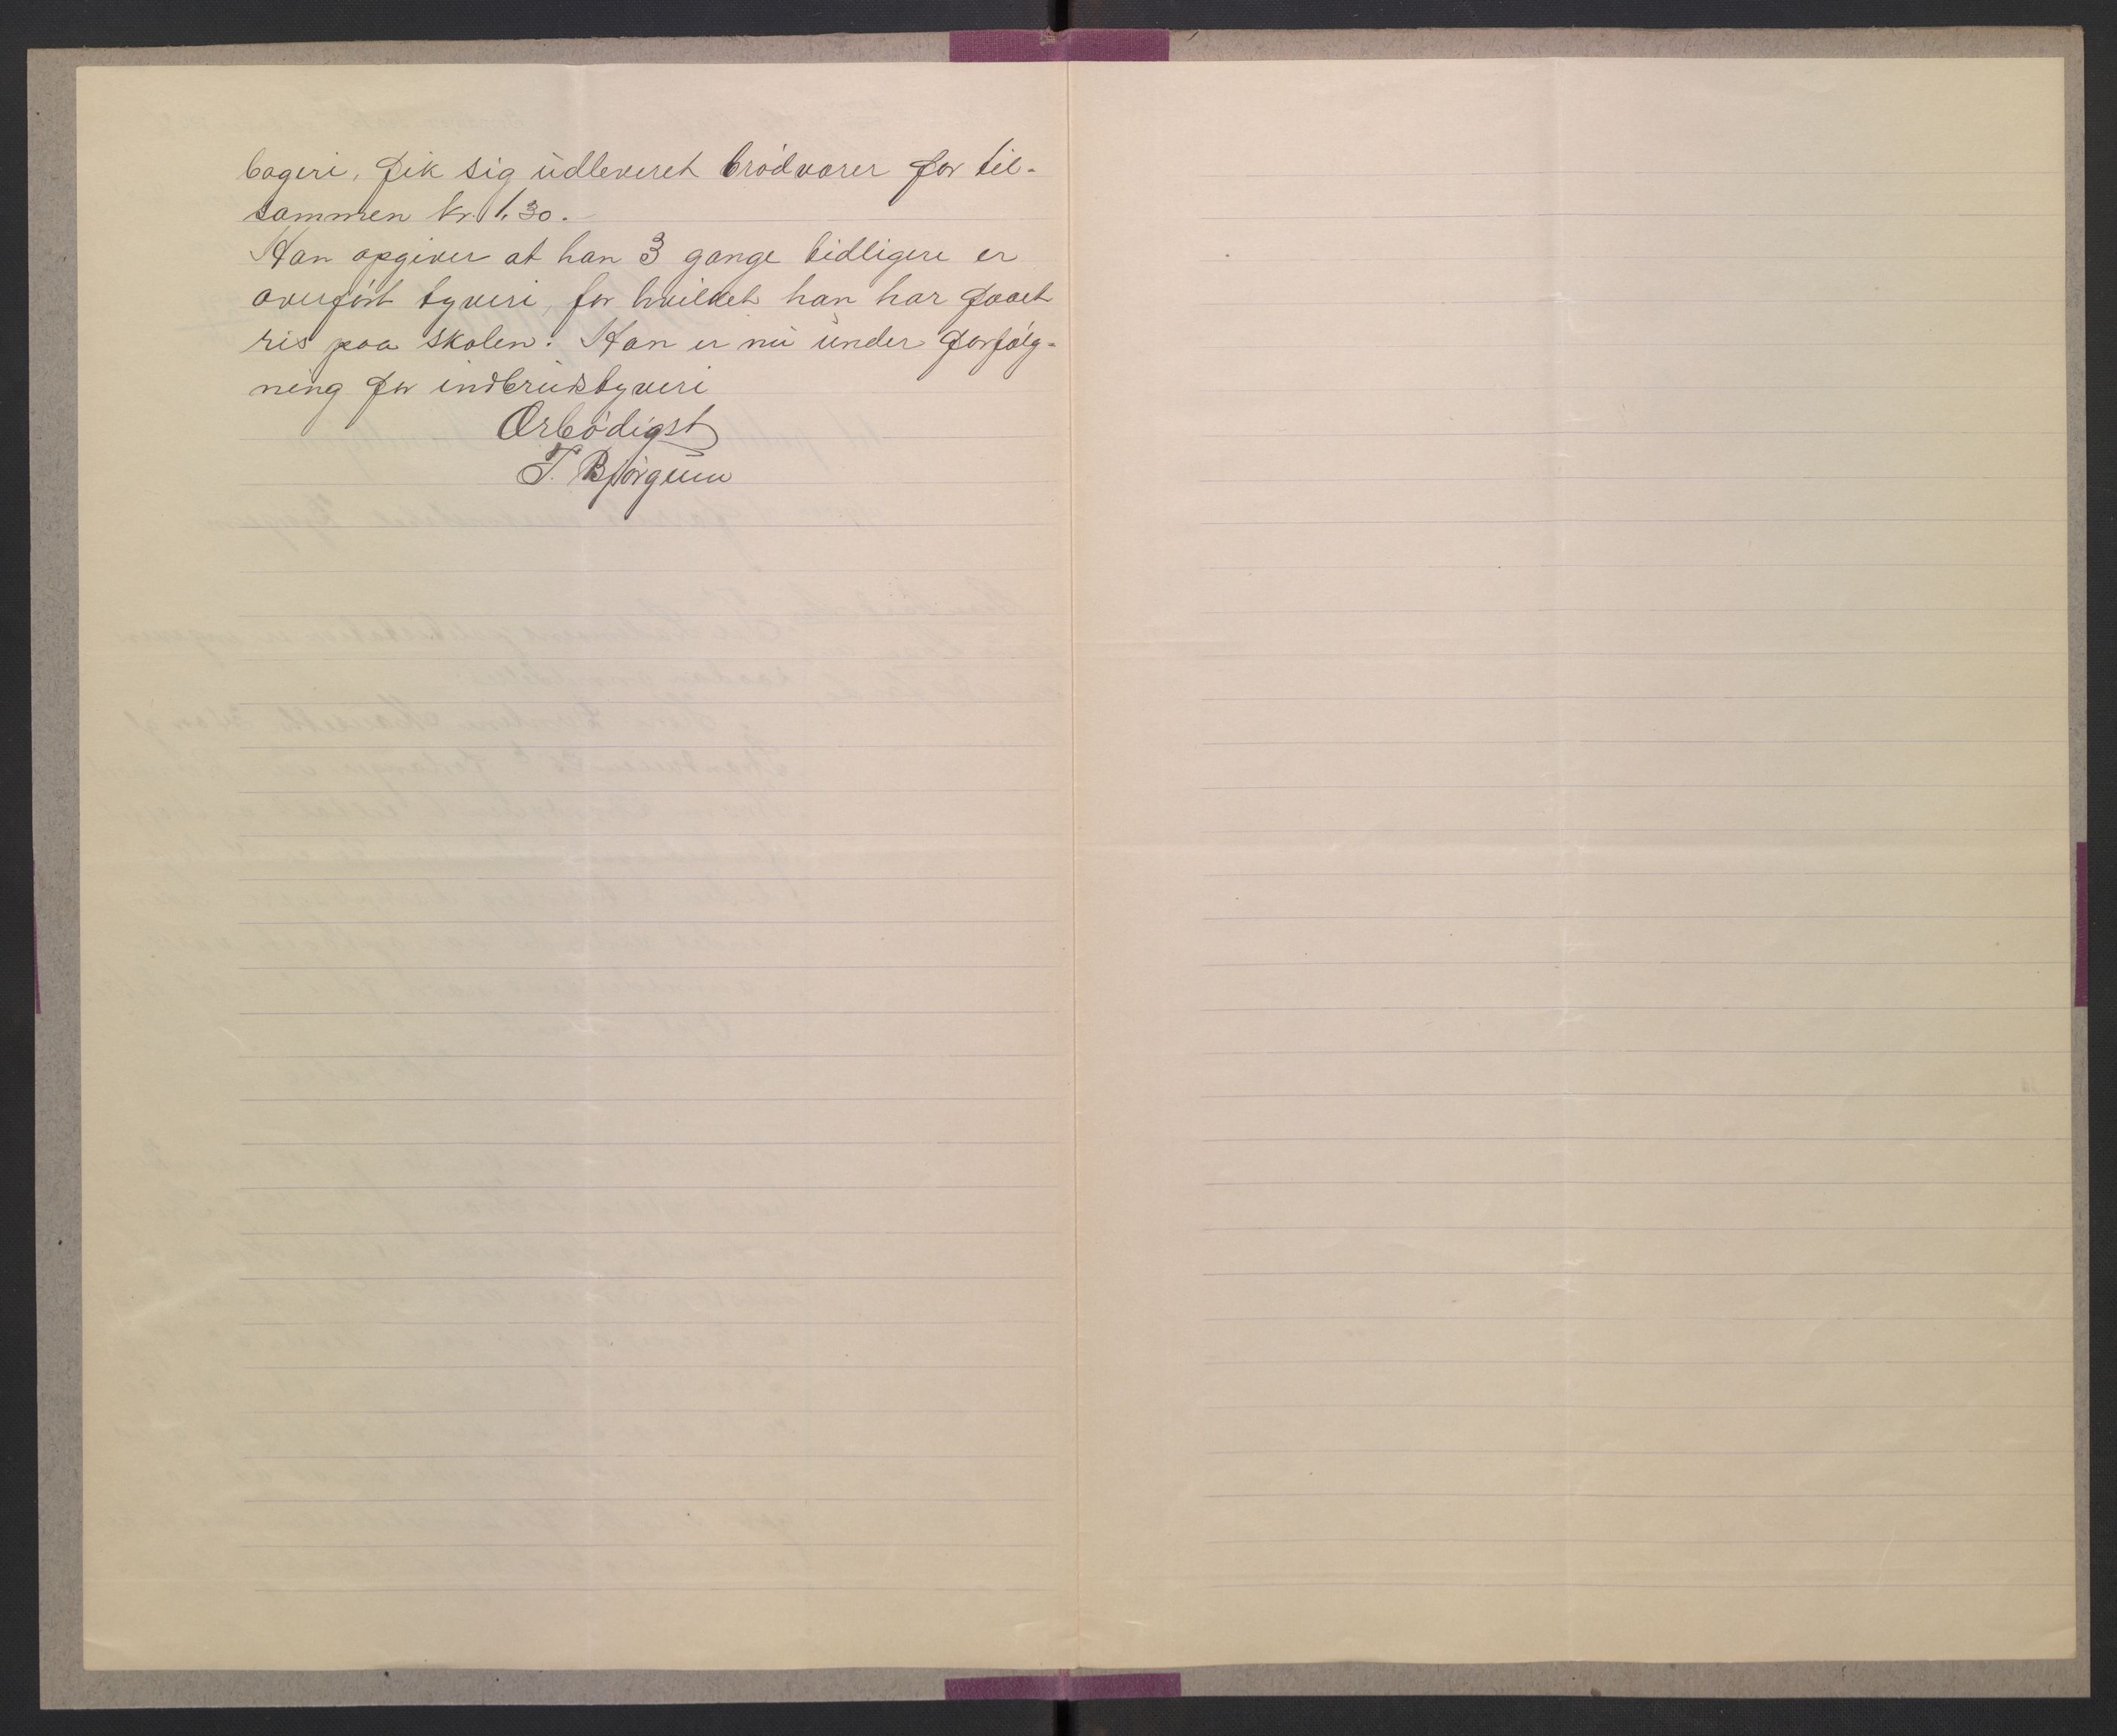 bageri, fik sig udleveret brödvarer for til-
sammen kr. 1.30.
Han opgiver at han 3 gange tidligere er
overfört tyveri, for hvilket han har faaet
ris paa skolen. Han er nu under forfölg-
ning for indbrudstyveri
Ærbödigst
T. Bjørgum